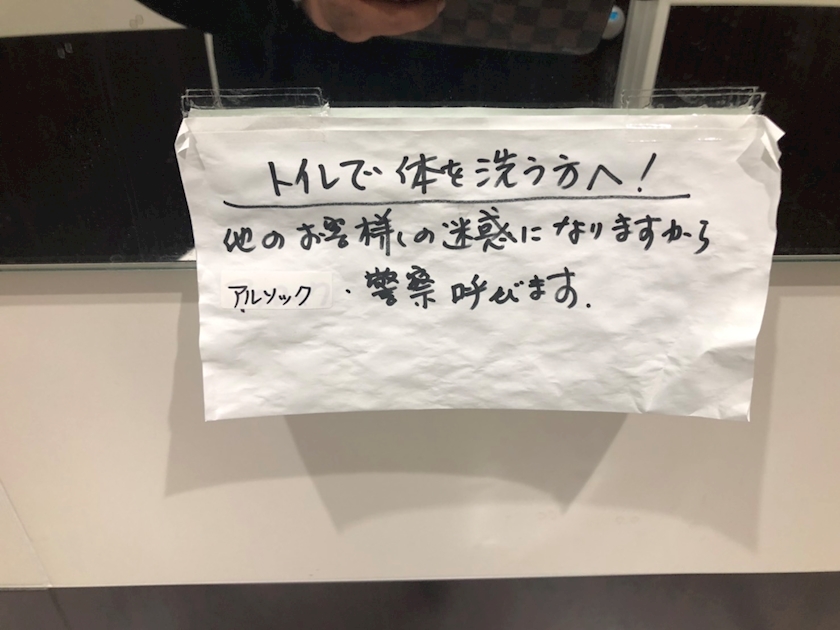 トイレで体を洗う方へ!
他のお客様の迷惑になりますから
アルソック・警察呼びます.